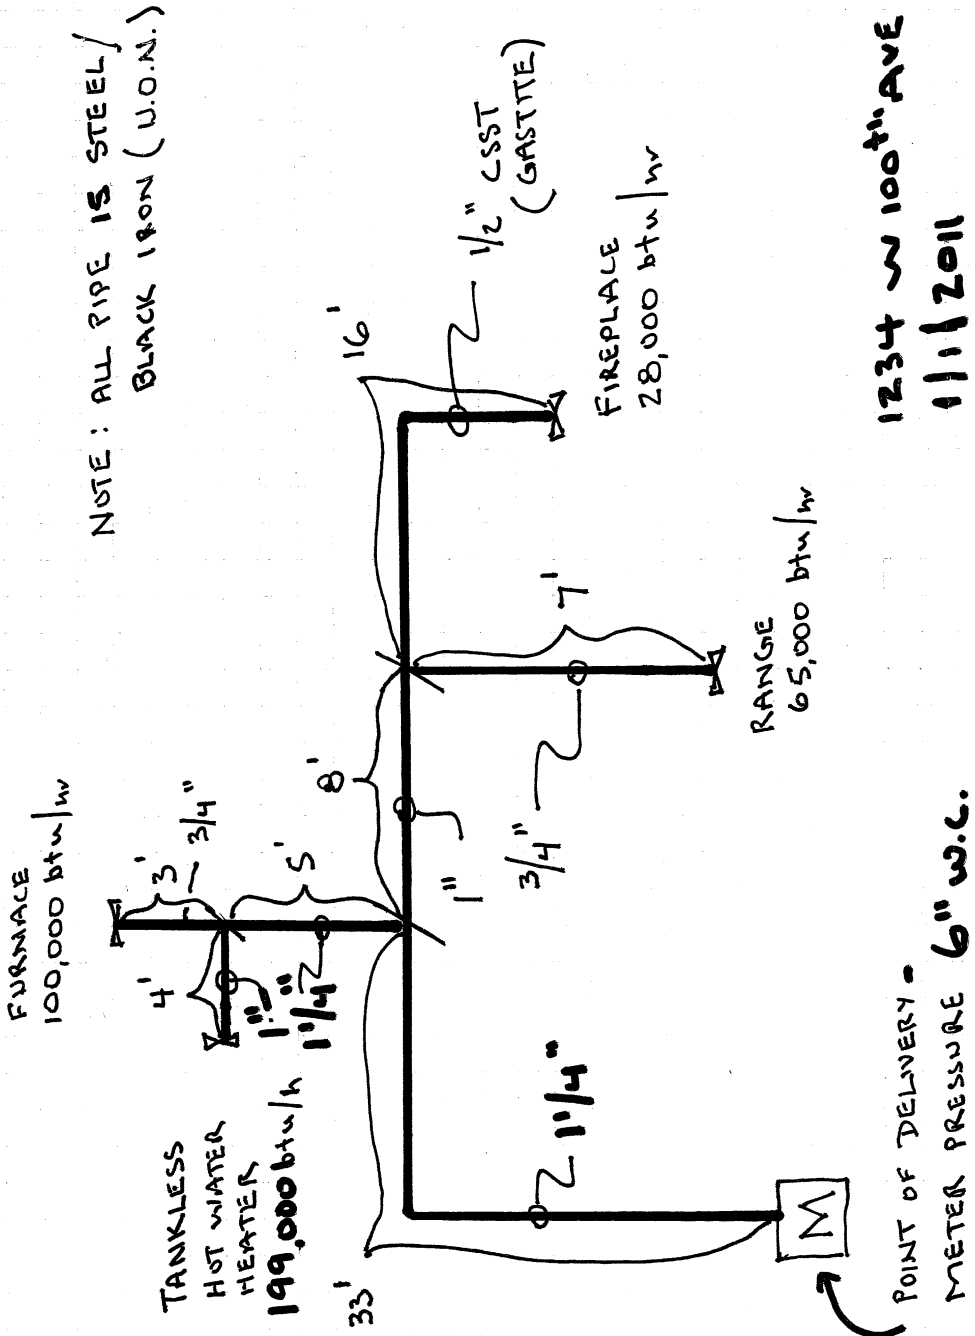 NOTE : ALL PIPE IS STEEL/
BLACK IRON (U.O.N.)
FURNACE
100,000 btu/hr
3'
3/4"
4'
5'
1"
1 1/4"
TANKLESS
HOT WATER
HEATER
199,000 btu/h
33'
1 1/4"
8'
1"
16'
1/2" CSST
(GASTITE)
7'
3/4"
FIREPLACE
28,000 btu/hr
RANGE
65,000 btu/hr
M
POINT OF DELIVERY -
METER PRESSURE 6" W.C.
1234 W 100th AVE
1/1/2011